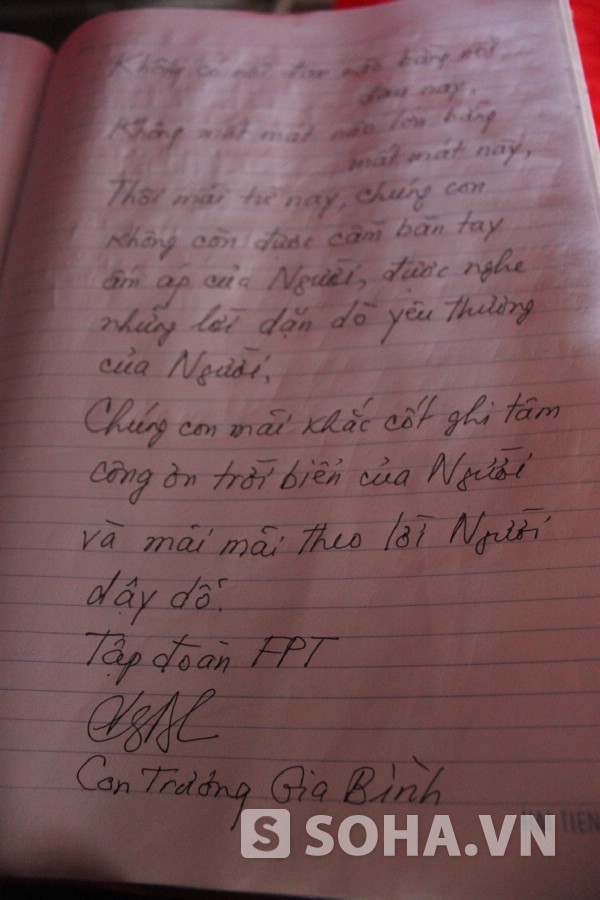 Không có nỗi đau nào bằng nỗi
đau này,
Không mất mát nào lớn bằng
mất mát này,
Thôi mãi từ nay, chúng con
không còn được cầm bàn tay
ấm áp của Người, được nghe
những lời dặn dò yêu thương
của Người,
Chúng con mãi khắc cốt ghi tâm
công ơn trời biển của Người
và mãi mãi theo lời Người
dậy dỗ.
Tập đoàn FPT
Con Trương Gia Bình
S SOHA.VN
TIEN